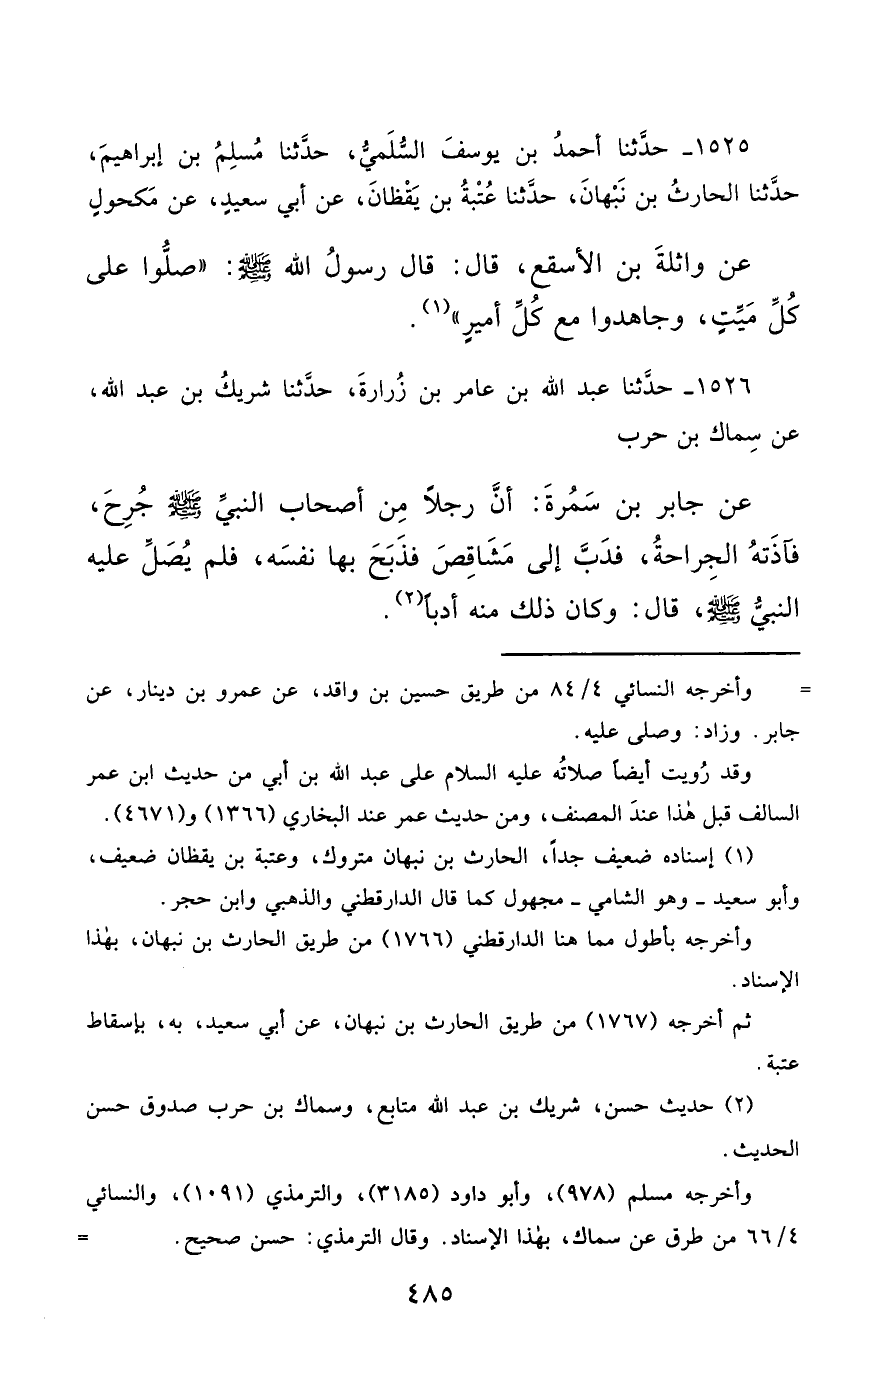 ١٥٢٥ـ حدَّثنا أحمدُ بن يوسفَ السُّلَميُّ، حدَّثنا مُسلِمُ بن إبراهيمَ،
حدَّثنا الحارثُ بن نَبْهانَ، حدَّثنا عُتْبةُ بن يَقْظانَ، عن أبي سعيدٍ، عن مَكحولٍ
عن واثلةَ بن الأسقع، قال: قال رسولُ الله ﷺ: «صلُّوا على
كُلِّ مَيِّتٍ، وجاهدوا مع كُلِّ أميرٍ»(١).
١٥٢٦ـ حدَّثنا عبد الله بن عامر بن زُرارةَ، حدَّثنا شريكُ بن عبد الله،
عن سِماك بن حرب
عن جابر بن سَمُرةَ: أنَّ رجلاً مِن أصحاب النبيِّ ﷺ جُرِحَ،
فآذَتهُ الجِراحةُ، فدَبَّ إلى مَشَاقِصَ فذَبَحَ بها نفسَه، فلم يُصَلِّ عليه
النبيُّ ﷺ، قال: وكان ذلك منه أدباً(٢).
= وأخرجه النسائي ٨٤/٤ من طريق حسين بن واقد، عن عمرو بن دينار، عن
جابر. وزاد: وصلى عليه.
وقد رُويت أيضاً صلاتُه عليه السلام على عبد الله بن أبي من حديث ابن عمر
السالف قبل هٰذا عندَ المصنف، ومن حديث عمر عند البخاري (١٣٦٦) و(٤٦٧١).
(١) إسناده ضعيف جداً، الحارث بن نبهان متروك، وعتبة بن يقظان ضعيف،
وأبو سعيد ـ وهو الشامي ـ مجهول كما قال الدارقطني والذهبي وابن حجر.
وأخرجه بأطول مما هنا الدارقطني (١٧٦٦) من طريق الحارث بن نبهان، بهٰذا
الإسناد.
ثم أخرجه (١٧٦٧) من طريق الحارث بن نبهان، عن أبي سعيد، به، بإسقاط
عتبة.
(٢) حديث حسن، شريك بن عبد الله متابع، وسماك بن حرب صدوق حسن
الحديث.
وأخرجه مسلم (٩٧٨)، وأبو داود (٣١٨٥)، والترمذي (١٠٩١)، والنسائي
٦٦/٤ من طرق عن سماك، بهٰذا الإسناد. وقال الترمذي: حسن صحيح. =
٤٨٥